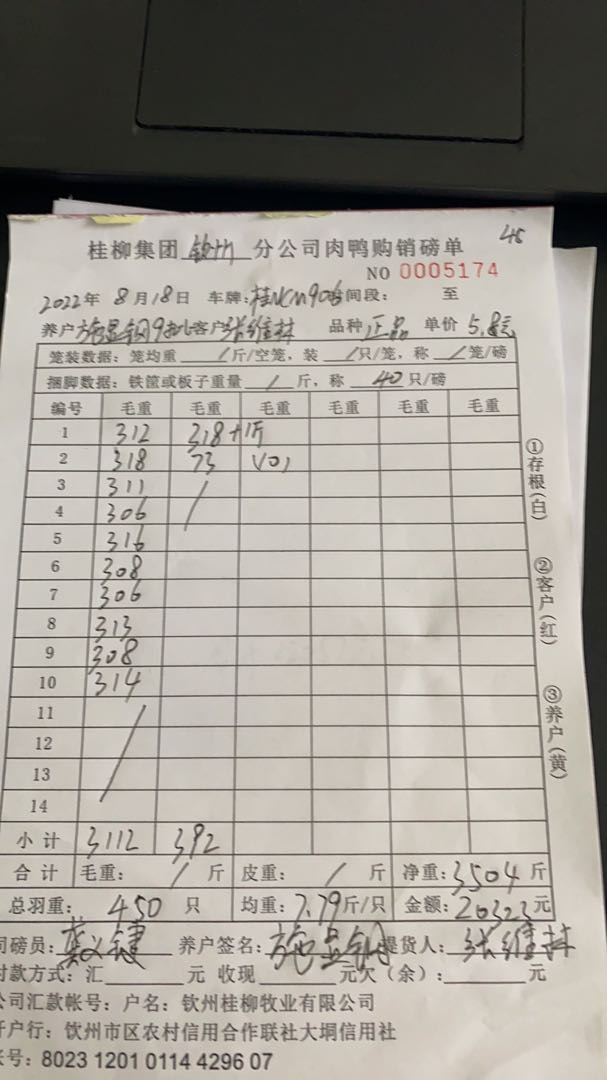 45
桂柳集团 钦州 分公司肉鸭购销磅单
NO 0005174
2022年 8月18日 车牌: 桂NCM906 时间段: 至
养户 施显钢9批 客户 张维林 品种 正品 单价 5.8元
笼装数据: 笼均重 / 斤/空笼, 装 / 只/笼, 称 / 笼/磅
捆脚数据: 铁筐或板子重量 / 斤, 称 40 只/磅
编号 毛重 毛重 毛重 毛重 毛重 毛重
1 312 318+1斤
2 318 73 (10)
3 311 /
4 306
5 316
6 308
7 306
8 313
9 308
10 314
11 /
12
13
14
小计 3112 392
合计 毛重: / 斤 皮重: / 斤 净重: 3504 斤
总羽重: 450 只 均重: 7.79 斤/只 金额: 20323 元
司磅员: 养户签名: 施显钢 提货人: 张维林
付款方式: 汇 元 收现 元欠(余): 元
公司汇款帐号: 户名: 钦州桂柳牧业有限公司
开户行: 钦州市区农村信用合作联社大垌信用社
帐号: 8023 1201 0114 4296 07
①存根(白)
②客户(红)
③养户(黄)